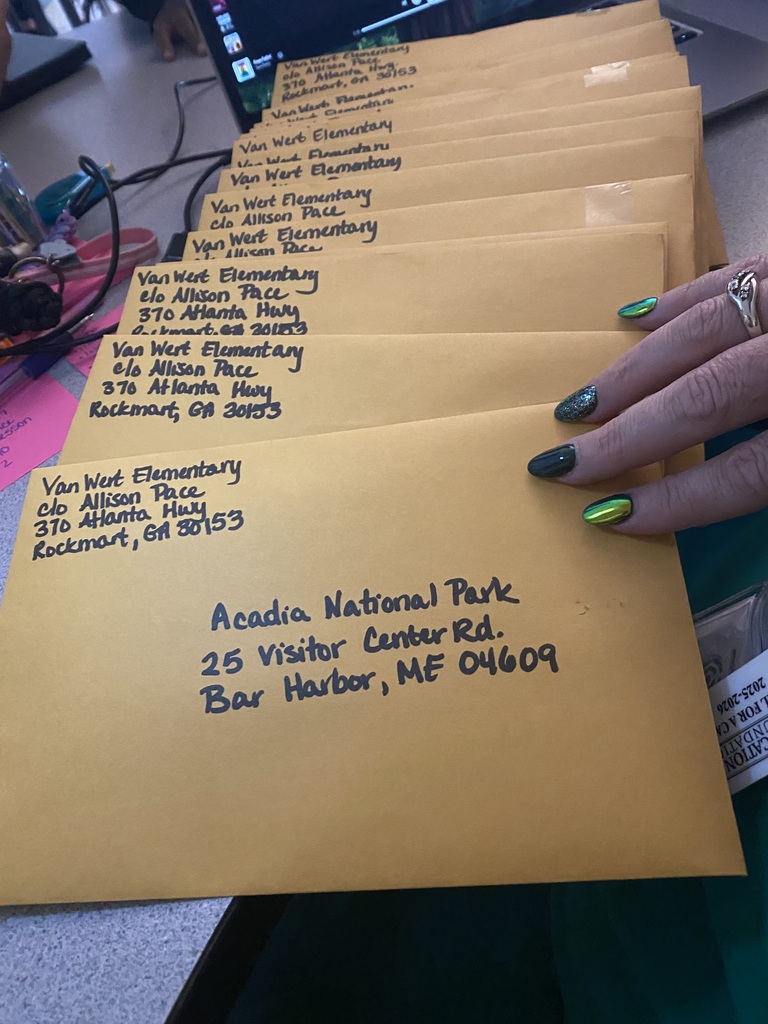 Van Wert Elementary
c/o Allison Pace
370 Atlanta Hwy.
Rockmart, GA 30153
Van Wert Elementary
Van Wert Elementary
Van Wert Elementary
Van Wert Elementary
Van Wert Elementary
c/o Allison Pace
Van Wert Elementary
c/o Allison Pace
Van Wert Elementary
c/o Allison Pace
370 Atlanta Hwy
Rockmart, GA 30153
Van Wert Elementary
c/o Allison Pace
370 Atlanta Hwy
Rockmart, GA 30153
Van Wert Elementary
c/o Allison Pace
370 Atlanta Hwy
Rockmart, GA 30153
Acadia National Park
25 Visitor Center Rd.
Bar Harbor, ME 04609
2025-2026
FOR A